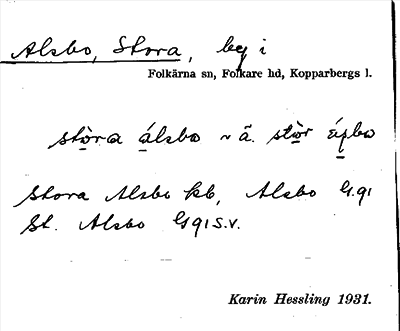 Alsbo, Stora, by i
Folkärna sn, Folkare hd, Kopparbergs l.
stòra álsbo ~ ä. stòr
Stora Alsbo kb, Alsbo G.91
St. Alsbo G 91 S.V.
Karin Hessling 1931.